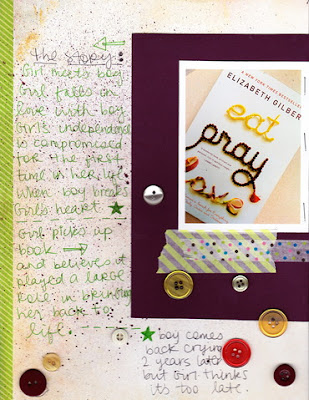 the story:
Girl meets boy.
Girl falls in
love with boy
Girl's independence
is compromised
for the first
time in her life
when boy breaks
Girl's heart
Girl picks up
book
and believes it
played a large
role in bringing
her back to
life
boy comes
back crying
2 years later
but girl thinks
its too late.
#1 NEW YORK TIMES BESTSELLER
ELIZABETH GILBER
eat
pray
love